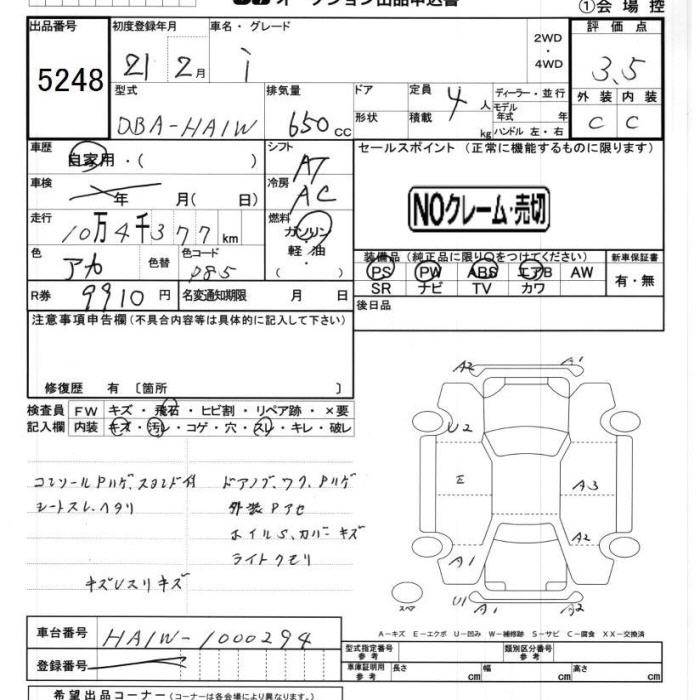 オークション出品申込書
①会場控
出品番号 初度登録年月 車名・グレード 2WD・4WD 評価点
5248 21 2月 i 3.5
型式 排気量 ドア 定員 ディーラー・並行 外装 内装
DBA-HA1W 650cc 形状 積載 4人 kg モデル年式 年 ハンドル 左・右 C C
車歴 自家用・( ) シフト AT セールスポイント (正常に機能するものに限ります)
車検 年 月( 日) 冷房 AC
NOクレーム・売切
走行 10万4千377km 燃料 ガソリン 軽・油 ( )
色 アカ 色替 色コード P85
装備品(純正品に限り○をつけてください) 新車保証書
PS PW ABS エアB AW 有・無
SR ナビ TV カワ
R券 9910円 名変通知期限 月 日
後日品
注意事項申告欄(不具合内容等は具体的に記入して下さい)
修復歴 有 〔箇所 〕
検査員 FW キズ・飛石・ヒビ割・リペア跡・×要
記入欄 内装 キズ・汚レ・コゲ・穴・スレ・キレ・破レ
コンソールPハゲ、スタンド付 ドアノブ、ワク、Pハゲ
シートスレ、ヘタリ 外装Pアセ
ホイルS、カバーキズ
ライトクモリ
キズUスリキズ
A2 A1
U2
E A3
A1 A2
スペア U1 A1 A2
A-キズ E-エクボ U-凹み W-補修跡 S-サビ C-腐食 XX-交換済
車台番号 HA1W-1000294
登録番号
型式指定番号 参考 類別区分番号 参考
車庫証明用 参考 長さ cm 幅 cm 高さ cm
希望出品コーナー(コーナーは各会場により異なります。)